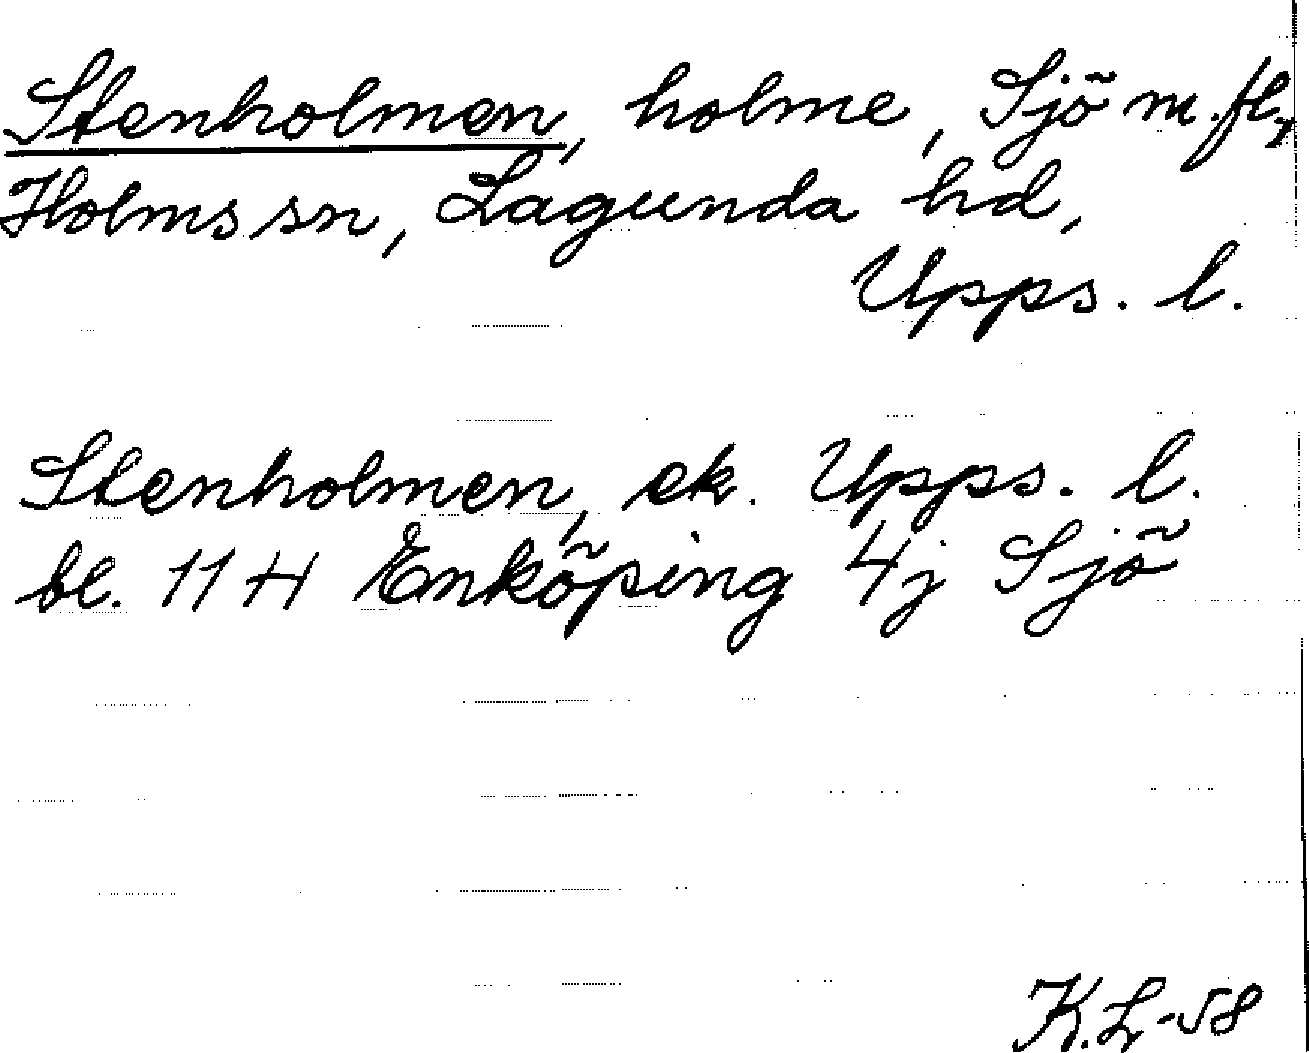 Stenholmen, holme, Sjö m. fl.,
Holms sn, Lagunda hd,
Upps. l.
Stenholmen, ek. Upps. l.
bl. 11 H Enköping 4j Sjö
K.L-58